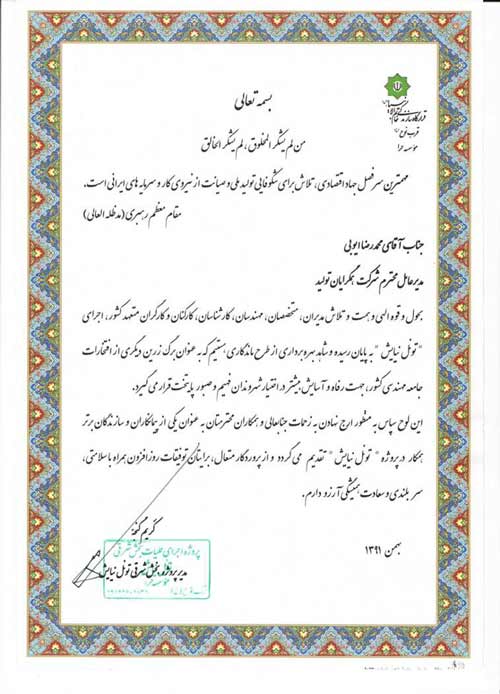 بسمه تعالی
قرارگاه سازندگی خاتم الانبیاء
قرب نوح
موسسه حرا
من لم یشکر المخلوق، لم یشکر الخالق
مهمترین سرفصل جهاد اقتصادی، تلاش برای شکوفایی تولید ملی و صیانت از نیروی کار و سرمایه های ایرانی است.
مقام معظم رهبری (مدظله العالی)
جناب آقای محمدرضا ایوبی
مدیرعامل محترم شرکت همگرایان تولید
بحول و قوه الهی و همت و تلاش مدیران، متخصصان، مهندسان، کارشناسان، کارکنان و کارگران متعهد کشور، اجرای
"تونل نیایش" به پایان رسیده و شاهد بهره برداری از طرح ماندگاری هستیم که به عنوان برگ زرین دیگری از افتخارات
جامعه مهندسی کشور، جهت رفاه و آسایش بیشتر در اختیار شهروندان فهیم و صبور پایتخت قرار می گیرد.
این لوح سپاس به منظور ارج نهادن به زحمات جنابعالی و همکاران محترمتان به عنوان یکی از پیمانکاران و سازندگان برتر
همکار در پروژه "تونل نیایش" تقدیم می گردد و از پروردگار متعال، برایتان توفیقات روزافزون همراه با سلامتی،
سربلندی و سعادت همیشگی آرزو دارم.
بهمن ۱۳۹۱
کریم
پروژه اجرای عملیات بخش شرقی
مدیر پروژه بخش شرقی تونل نیایش